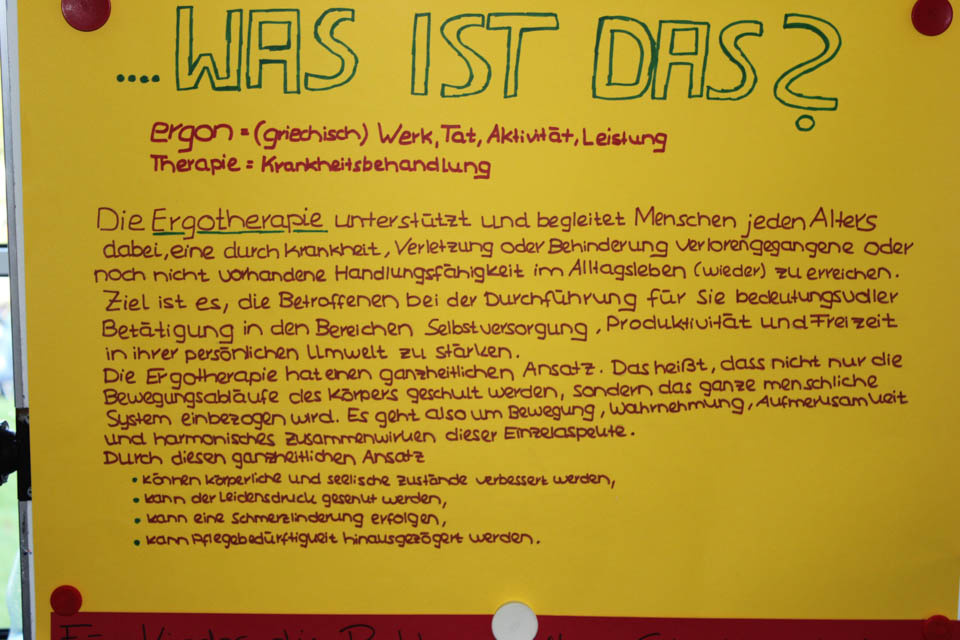 ....WAS IST DAS?
ergon = (griechisch) Werk, Tat, Aktivität, Leistung
Therapie = Krankheitsbehandlung
Die Ergotherapie unterstützt und begleitet Menschen jeden Alters
dabei, eine durch Krankheit, Verletzung oder Behinderung verlorengegangene oder
noch nicht vorhandene Handlungsfähigkeit im Alltagsleben (wieder) zu erreichen.
Ziel ist es, die Betroffenen bei der Durchführung für Sie bedeutungsvoller
Betätigung in den Bereichen Selbstversorgung, Produktivität und Freizeit
in ihrer persönlichen Umwelt zu stärken.
Die Ergotherapie hat enen ganzheitlichen Ansatz. Das heißt, dass nicht nur die
Bewegungsabläufe des Körpers geschult werden, sondern das ganze menschliche
System einbezogen wird. Es geht also um Bewegung, Wahrnehmung, Aufmerksamkeit
und harmonisches zusammenwirken dieser Einzelaspekte.
Durch diesen ganzheitlichen Ansatz
• können körperliche und seelische zustände verbessert werden,
• kann der Leidensdruck gesenkt werden,
• kann eine Schmerzlinderung erfolgen,
• kann Pflegebedürftigkeit hinausgezögert werden.